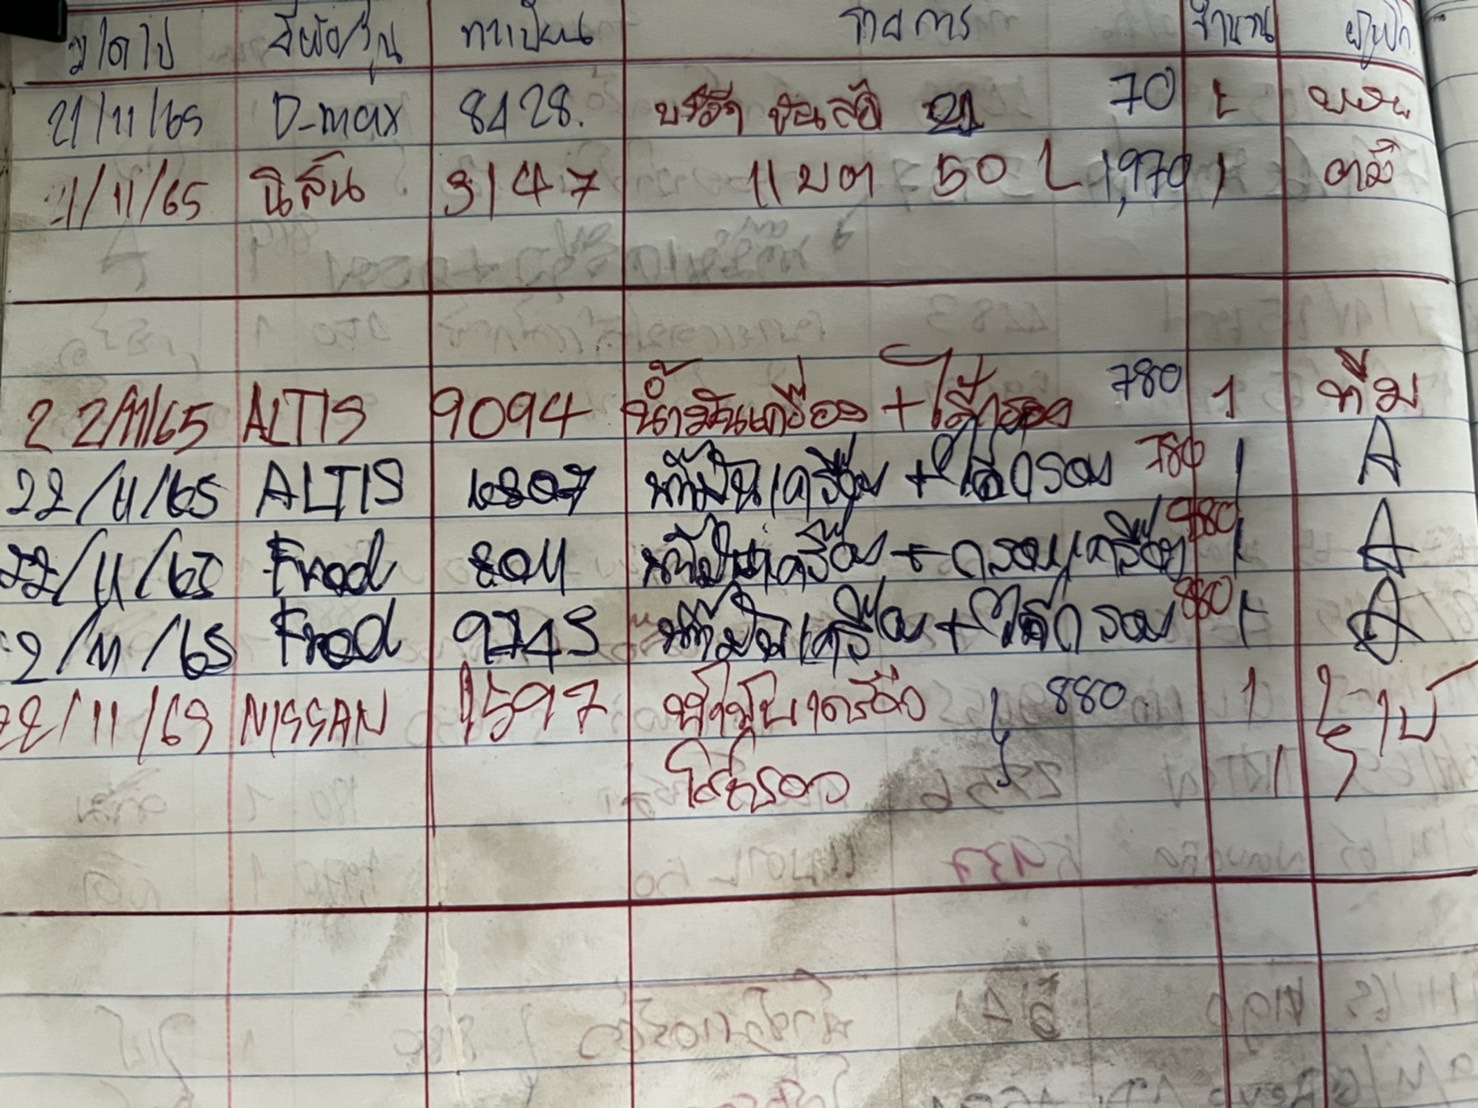 ว/ด/ป ยี่ห้อ/รุ่น ทะเบียน รายการ จำนวน ผู้เบิก
21/11/65 D-max 8428. 21 70 1
21/11/65 นิสสัน 3147 แบต 50 L 1,970 1
22/11/65 ALTIS 9094 น้ำมันเครื่อง + ไส้กรอง 780 1 ทีม
22/11/65 ALTIS 6807 น้ำมันเครื่อง + ไส้กรอง 780 1 A
22/11/65 Frod 8011 น้ำมันเครื่อง + กรองเครื่อง 980 1 A
22/11/65 Frod 9745 น้ำมันเครื่อง + ไส้กรอง 880 1 A
22/11/65 NISSAN 1597 น้ำมันเครื่อง 880 1
ไส้กรอง